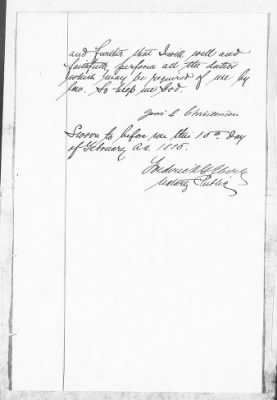 and further that I will well and
faithfully perform all the duties
which may be required of me by
law. So help me God.
Jens C Christensen
Sworn to before me this 10th day
of February A.D. 1885.
Frederick
Notary Public